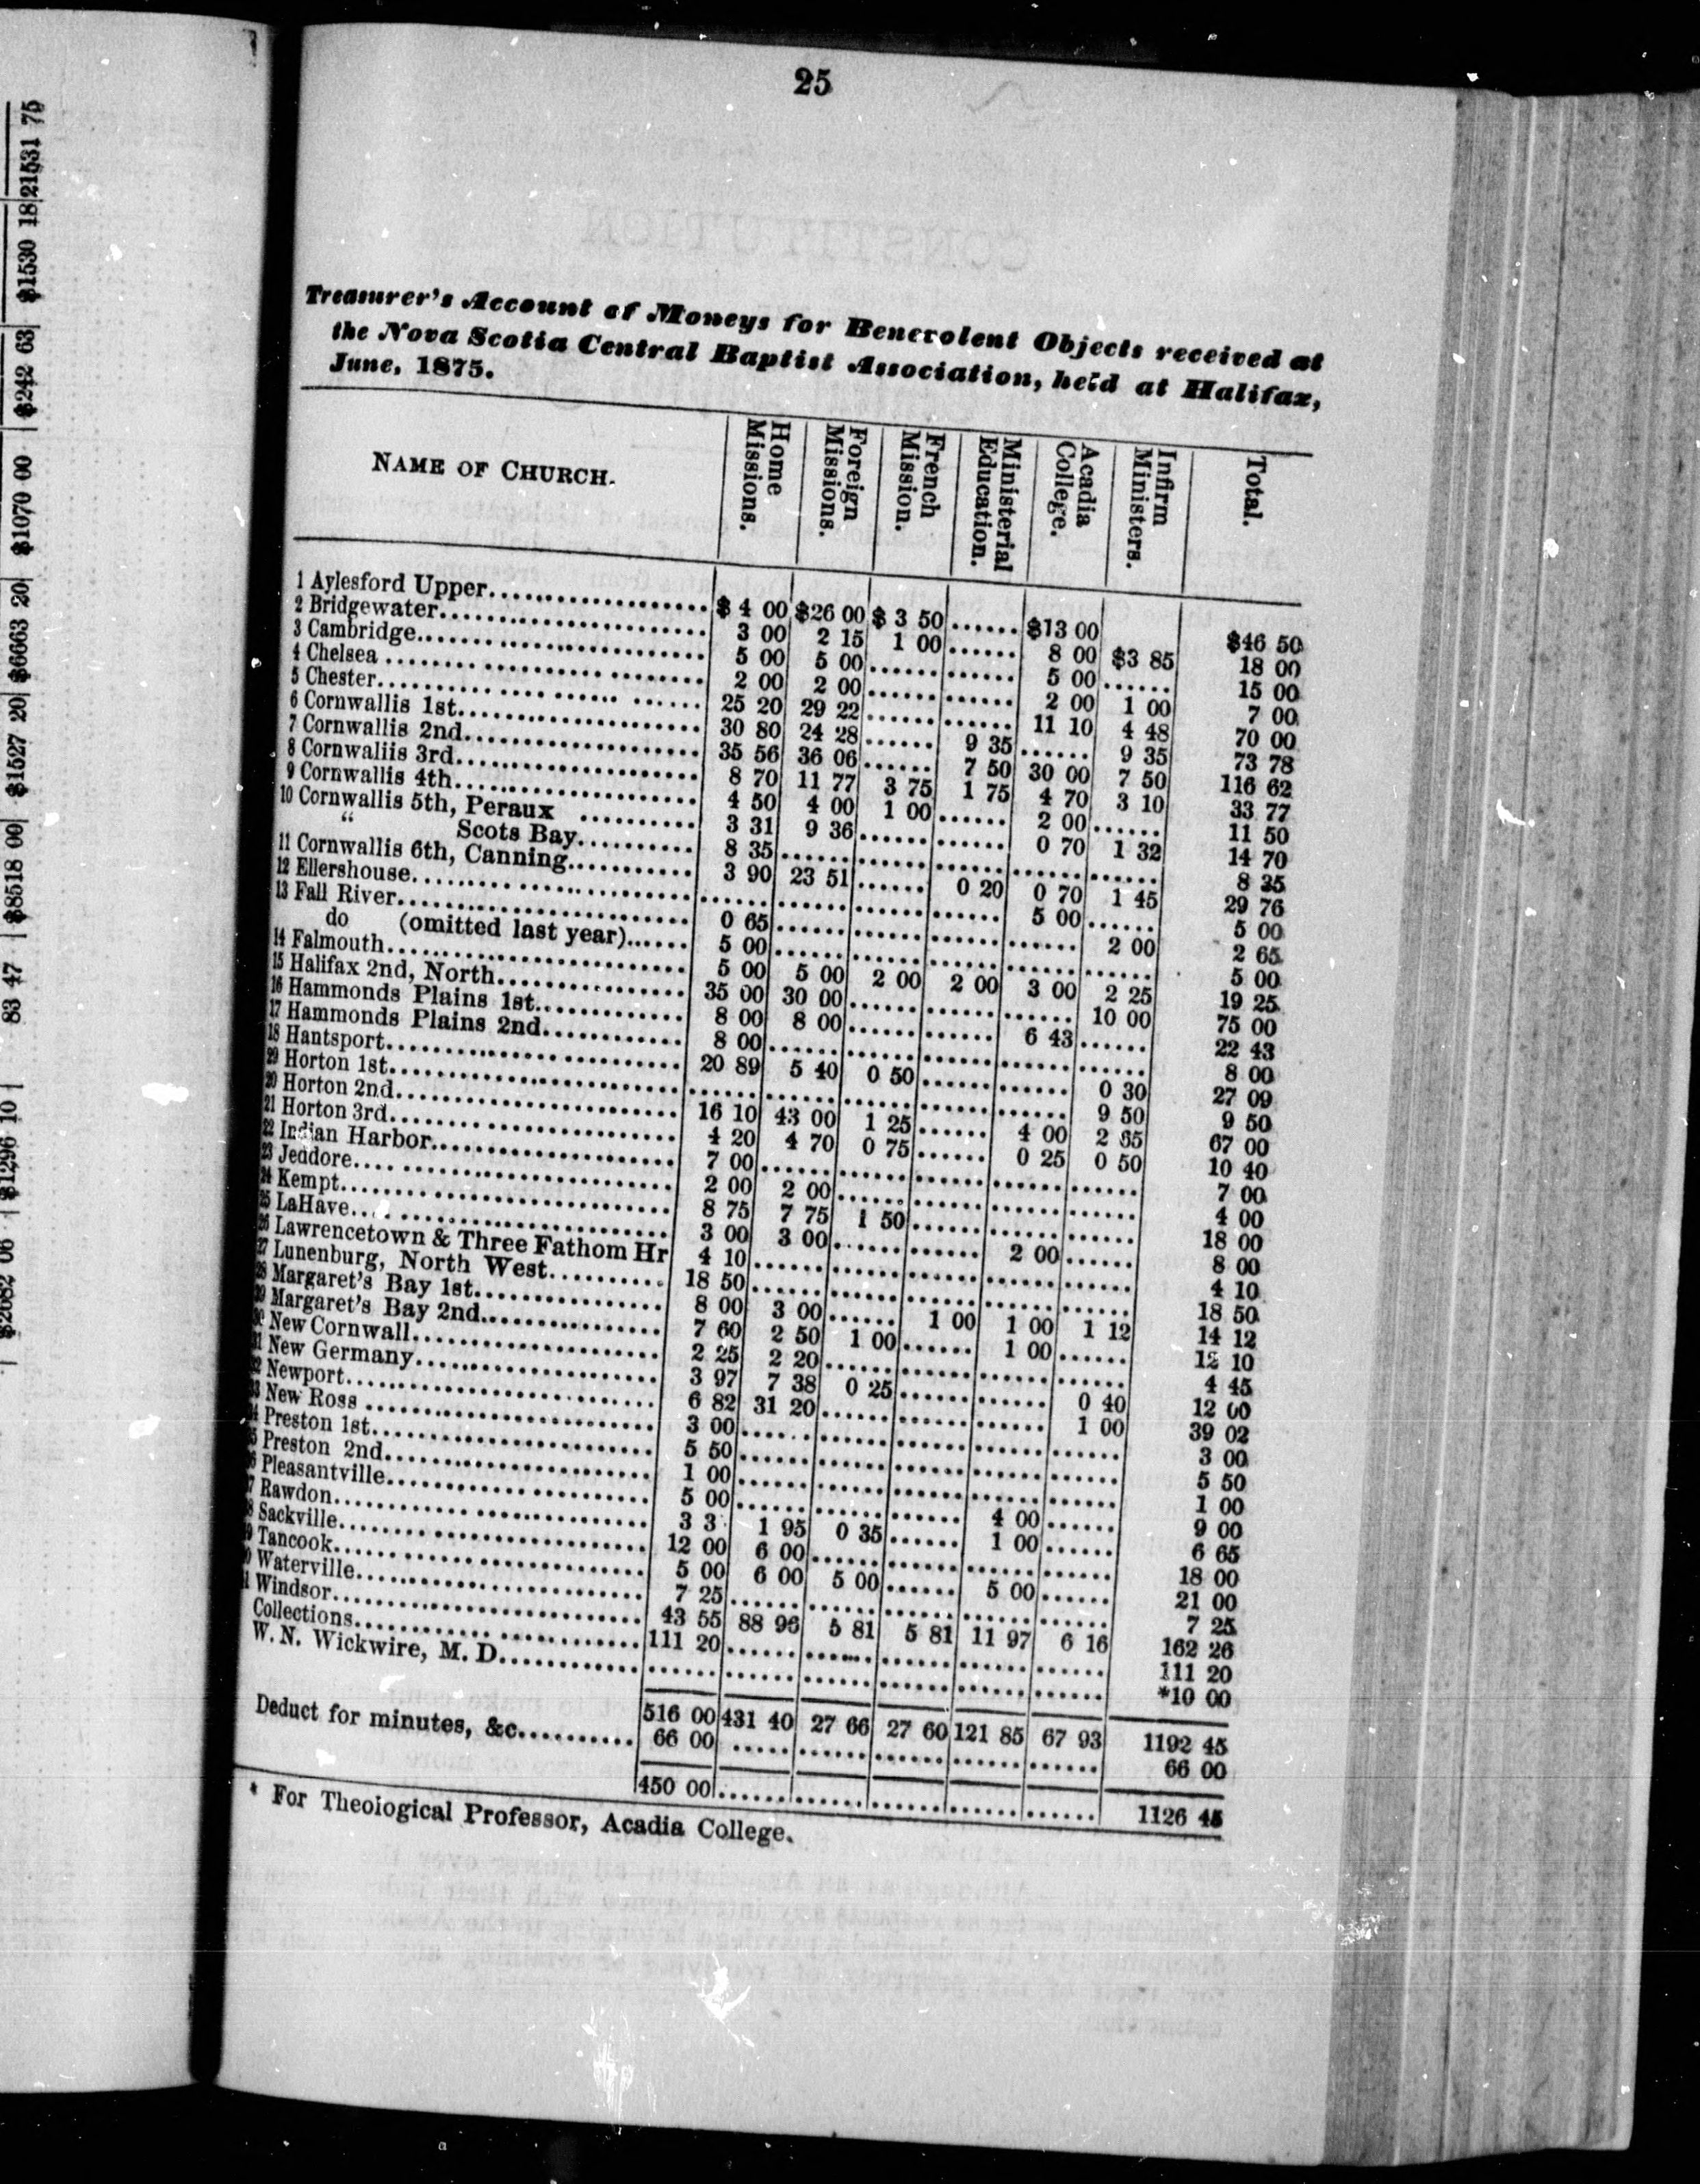 25
Treasurer's Account of Moneys for Benevolent Objects received at
the Nova Scotia Central Baptist Association, held at Halifax,
June, 1875.
NAME OF CHURCH. Home Missions. Foreign Missions. French Mission. Ministerial Education. Acadia College. Infirm Ministers. Total.
1 Aylesford Upper.................... $ 4 00 $26 00 $ 3 50 ...... $13 00 $46 50
2 Bridgewater........................ 3 00 2 15 1 00 ...... 8 00 $3 85 18 00
3 Cambridge.......................... 5 00 5 00 ...... ...... 5 00 ...... 15 00
4 Chelsea ........................... 2 00 2 00 ...... ...... 2 00 1 00 7 00
5 Chester............................ 25 20 29 22 ...... ...... 11 10 4 48 70 00
6 Cornwallis 1st..................... 30 80 24 28 ...... 9 35 ...... 9 35 73 78
7 Cornwallis 2nd..................... 35 56 36 06 ...... 7 50 30 00 7 50 116 62
8 Cornwaliis 3rd..................... 8 70 11 77 3 75 1 75 4 70 3 10 33 77
9 Cornwallis 4th..................... 4 50 4 00 1 00 ...... 2 00 ...... 11 50
10 Cornwallis 5th, Peraux .......... 3 31 9 36 ...... ...... 0 70 1 32 14 70
“ Scots Bay.......... 8 35 ...... ...... ...... ...... ...... 8 35
11 Cornwallis 6th, Canning........... 3 90 23 51 ...... 0 20 0 70 1 45 29 76
12 Ellershouse....................... ...... ...... ...... ...... 5 00 ...... 5 00
13 Fall River........................ 0 65 ...... ...... ...... ...... 2 00 2 65
do (omitted last year)...... 5 00 ...... ...... ...... ...... ...... 5 00
14 Falmouth.......................... 5 00 5 00 2 00 2 00 3 00 2 25 19 25
15 Halifax 2nd, North................ 35 00 30 00 ...... ...... ...... 10 00 75 00
16 Hammonds Plains 1st.............. 8 00 8 00 ...... ...... 6 43 ...... 22 43
17 Hammonds Plains 2nd............. 8 00 ...... ...... ...... ...... ...... 8 00
18 Hantsport......................... 20 89 5 40 0 50 ...... ...... 0 30 27 09
Horton 1st........................ ...... ...... ...... ...... ...... 9 50 9 50
20 Horton 2nd........................ 16 10 43 00 1 25 ...... 4 00 2 65 67 00
21 Horton 3rd........................ 4 20 4 70 0 75 ...... 0 25 0 50 10 40
22 Indian Harbor..................... 7 00 ...... ...... ...... ...... ...... 7 00
23 Jeddore........................... 2 00 2 00 ...... ...... ...... ...... 4 00
24 Kempt............................. 8 75 7 75 1 50 ...... ...... ...... 18 00
25 LaHave............................ 3 00 3 00 ...... ...... 2 00 ...... 8 00
26 Lawrencetown & Three Fathom Hr 4 10 ...... ...... ...... ...... ...... 4 10
27 Lunenburg, North West........... 18 50 ...... ...... ...... ...... ...... 18 50
28 Margaret's Bay 1st................ 8 00 3 00 ...... 1 00 1 00 1 12 14 12
29 Margaret's Bay 2nd............... 7 60 2 50 1 00 ...... 1 00 ...... 12 10
30 New Cornwall..................... 2 25 2 20 ...... ...... ...... ...... 4 45
31 New Germany...................... 3 97 7 38 0 25 ...... ...... 0 40 12 00
32 Newport........................... 6 82 31 20 ...... ...... ...... 1 00 39 02
33 New Ross ......................... 3 00 ...... ...... ...... ...... ...... 3 00
4 Preston 1st........................ 5 50 ...... ...... ...... ...... ...... 5 50
5 Preston 2nd........................ 1 00 ...... ...... ...... ...... ...... 1 00
6 Pleasantville...................... 5 00 ...... ...... ...... 4 00 ...... 9 00
7 Rawdon............................. 3 3 1 95 0 35 ...... 1 00 ...... 6 65
8 Sackville.......................... 12 00 6 00 ...... ...... ...... ...... 18 00
9 Tancook............................ 5 00 6 00 5 00 ...... 5 00 ...... 21 00
0 Waterville......................... 7 25 ...... ...... ...... ...... ...... 7 25
1 Windsor............................ 43 55 88 96 5 81 5 81 11 97 6 16 162 26
Collections.......................... 111 20 ...... ...... ...... ...... ...... 111 20
W. N. Wickwire, M. D............ ...... ...... ...... ...... ...... ...... *10 00
516 00 431 40 27 66 27 60 121 85 67 93 1192 45
Deduct for minutes, &c........... 66 00 ...... ...... ...... ...... ...... 66 00
450 00 ...... ...... ...... ...... ...... 1126 45
* For Theological Professor, Acadia College.
83 47 $8518 00 $1527 20 $6663 20 $1070 00 $242 63 $1530 18 21531 75